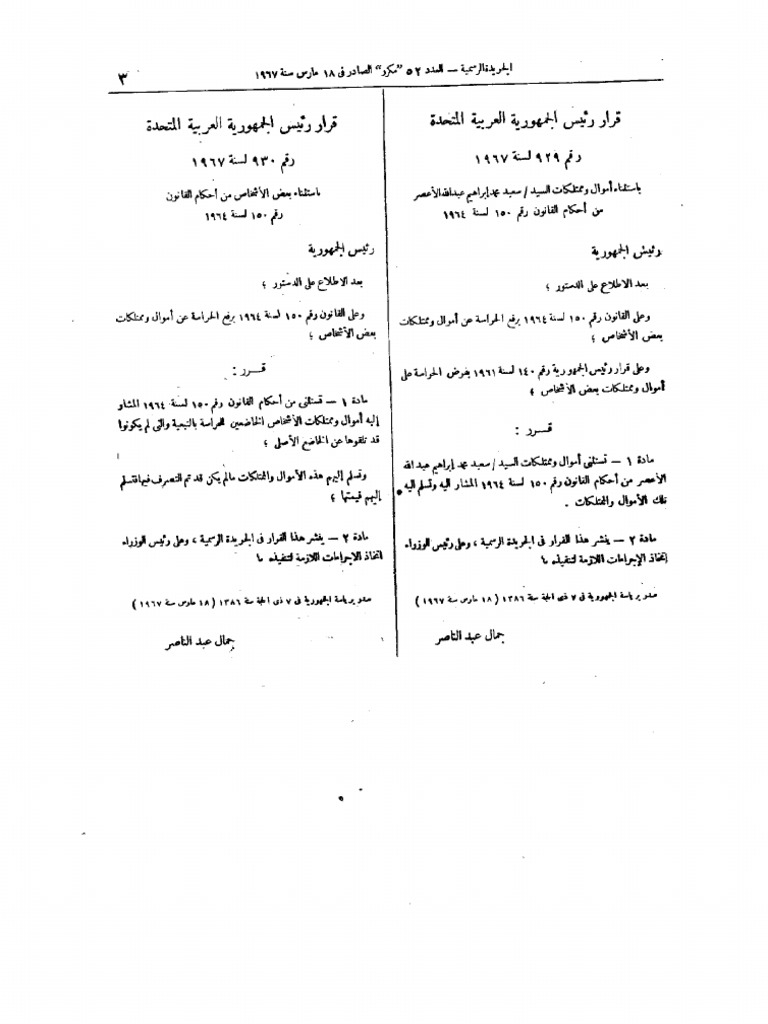 الجريدة الرسمية – العدد ٥٢ "مكرر" الصادر فى ١٨ مارس سنة ١٩٦٧
٣
قرار رئيس الجمهورية العربية المتحدة
رقم ٩٢٩ لسنة ١٩٦٧
باستثناء أموال وممتلكات السيد / سعيد محمد إبراهيم عبد الله الأعصر
من أحكام القانون رقم ١٥٠ لسنة ١٩٦٤
رئيس الجمهورية
بعد الاطلاع على الدستور ؛
وعلى القانون رقم ١٥٠ لسنة ١٩٦٤ برفع الحراسة عن أموال وممتلكات
بعض الأشخاص ؛
وعلى قرار رئيس الجمهورية رقم ١٤٠ لسنة ١٩٦١ بفرض الحراسة على
أموال وممتلكات بعض الأشخاص ؛
قــرر :
مادة ١ – تستثنى أموال وممتلكات السيد / سعيد محمد إبراهيم عبد الله
الأعصر من أحكام القانون رقم ١٥٠ لسنة ١٩٦٤ المشار اليه وتسلم اليه
تلك الأموال والممتلكات .
مادة ٢ – ينشر هذا القرار فى الجريدة الرسمية ، وعلى رئيس الوزراء
إتخاذ الإجراءات اللازمة لتنفيذه ما
صدر برياسة الجمهورية فى ٧ ذى الحجة سنة ١٣٨٦ ( ١٨ مارس سنة ١٩٦٧ )
جمال عبد الناصر
قرار رئيس الجمهورية العربية المتحدة
رقم ٩٣٠ لسنة ١٩٦٧
باستثناء بعض الأشخاص من أحكام القانون
رقم ١٥٠ لسنة ١٩٦٤
رئيس الجمهورية
بعد الاطلاع على الدستور ؛
وعلى القانون رقم ١٥٠ لسنة ١٩٦٤ برفع الحراسة عن أموال وممتلكات
بعض الأشخاص ؛
قــرر :
مادة ١ – تستثنى من أحكام القانون رقم ١٥٠ لسنة ١٩٦٤ المشار
إليه أموال وممتلكات الأشخاص الخاضعين للحراسة بالتبعية والتى لم يكونوا
قد تلقوها عن الخاضع الأصلى ؛
وتسلم إليهم هذه الأموال والممتلكات مالم يكن قد تم التصرف فيها فتسلم
إليهم قيمتها ؛
مادة ٢ – ينشر هذا القرار فى الجريدة الرسمية ، وعلى رئيس الوزراء
اتخاذ الاجراءات اللازمة لتنفيذه ما
صدر برياسة الجمهورية فى ٧ ذى الحجة سنة ١٣٨٦ ( ١٨ مارس سنة ١٩٦٧ )
جمال عبد الناصر